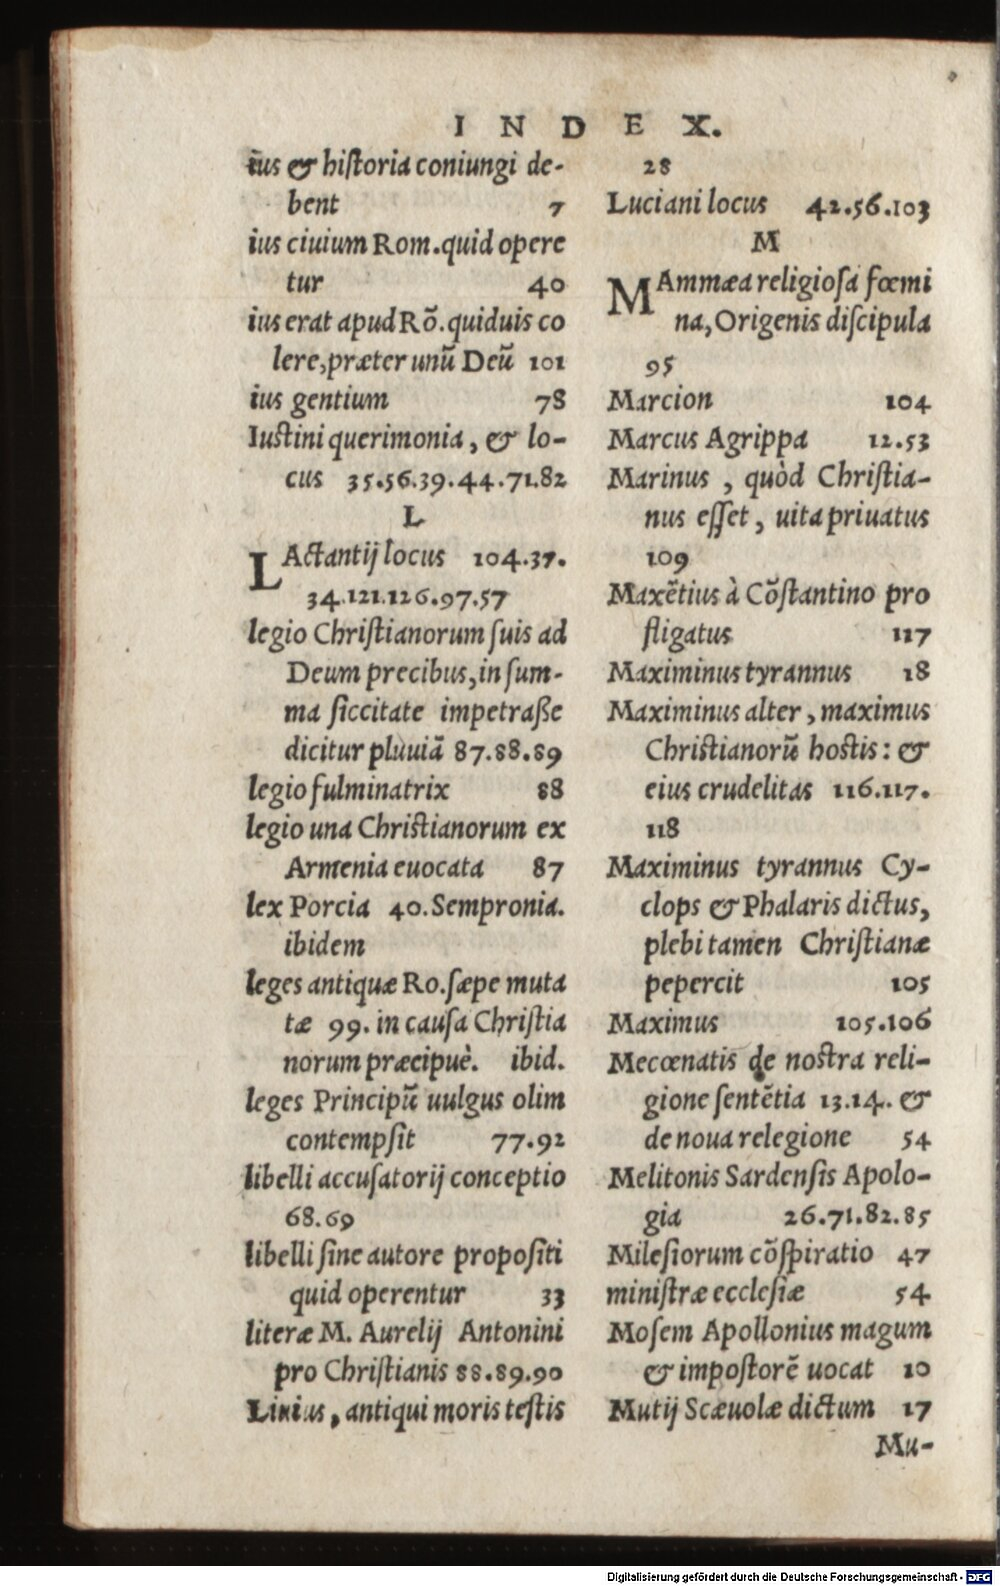 INDEX.
ius & historia coniungi de-
bent 7
ius ciuium Rom. quid opere
tur 40
ius erat apud Rõ. quiduis co
lere, præter unũ Deũ 101
ius gentium 78
Iustini querimonia, & lo-
cus 35.56.39.44.71.82
L
LActantij locus 104.37.
34.121.126.97.57
legio Christianorum suis ad
Deum precibus, in sum-
ma siccitate impetraße
dicitur pluuiã 87.88.89
legio fulminatrix 88
legio una Christianorum ex
Armenia euocata 87
lex Porcia 40. Sempronia.
ibidem
leges antiquæ Ro. sæpe muta
tæ 99. in causa Christia
norum præcipuè. ibid.
leges Principũ uulgus olim
contempsit 77.92
libelli accusatorij conceptio
68.69
libelli sine autore propositi
quid operentur 33
literæ M. Aurelij Antonini
pro Christianis 88.89.90
Liuius, antiqui moris testis
28
Luciani locus 42.56.103
M
MAmmæa religiosa fœmi
na, Origenis discipula
95
Marcion 104
Marcus Agrippa 12.53
Marinus, quòd Christia-
nus esset, uita priuatus
109
Maxẽtius à Cõstantino pro
fligatus 117
Maximinus tyrannus 18
Maximinus alter, maximus
Christianorũ hostis: &
eius crudelitas 116.117.
118
Maximinus tyrannus Cy-
clops & Phalaris dictus,
plebi tamen Christianæ
pepercit 105
Maximus 105.106
Mecœnatis de nostra reli-
gione sentẽtia 13.14. &
de noua relegione 54
Melitonis Sardensis Apolo-
gia 26.71.82.85
Milesiorum cõspiratio 47
ministræ ecclesiæ 54
Mosem Apollonius magum
& impostorẽ uocat 10
Mutij Scæuolæ dictum 17
Mu-
Digitalisierung gefördert durch die Deutsche Forschungsgemeinschaft - DFG